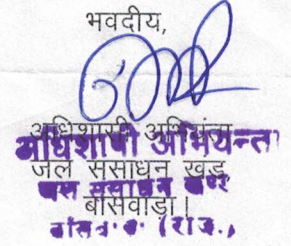 भवदीय,
अधिशाषी अभियंता
अधिशाषी अभियन्ता
जल संसाधन खण्ड,
जल संसाधन खण्ड
बांसवाड़ा।
बांसवाड़ा (राज.)